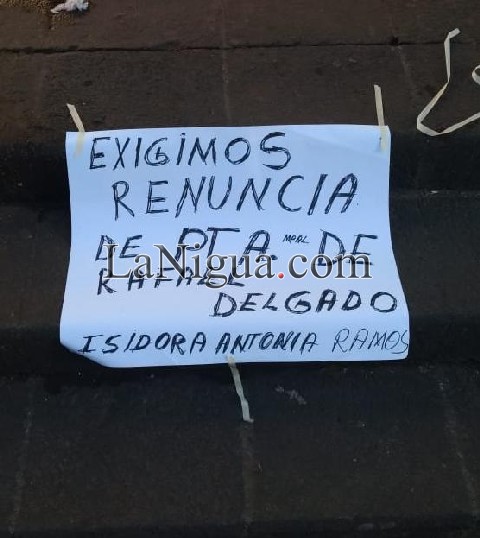 EXIGIMOS
RENUNCIA
DE PTA. MPAL DE
LaNigua.com
RAFAEL
DELGADO
ISIDORA ANTONIA RAMOS